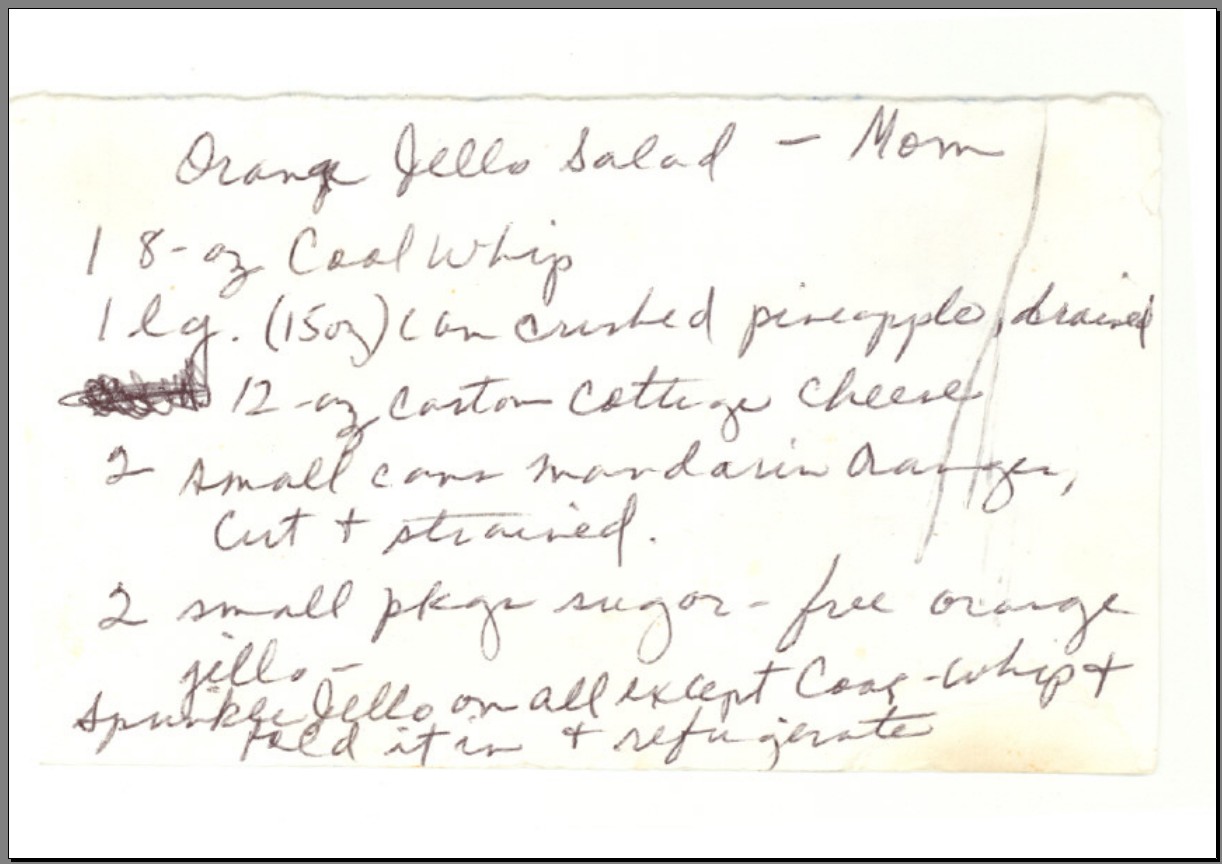 Orange Jello Salad - Mom
1 8-oz Cool Whip
1 lg. (15oz) can crushed pineapple, drained
12-oz carton cottage cheese
2 small cans mandarin oranges,
cut + strained.
2 small pkgs sugar-free orange
jello -
Sprinkle Jello on all except Cool-Whip +
fold it in + refrigerate